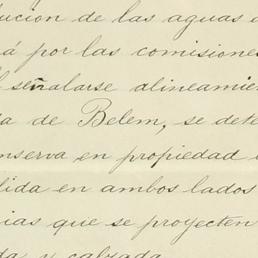 ución de las aguas
á por las comisiones
l señalarse alineamie
a de Belem, se dete
onserva en propiedad
lida en ambos lados
ias que se proyecten
da y calzada